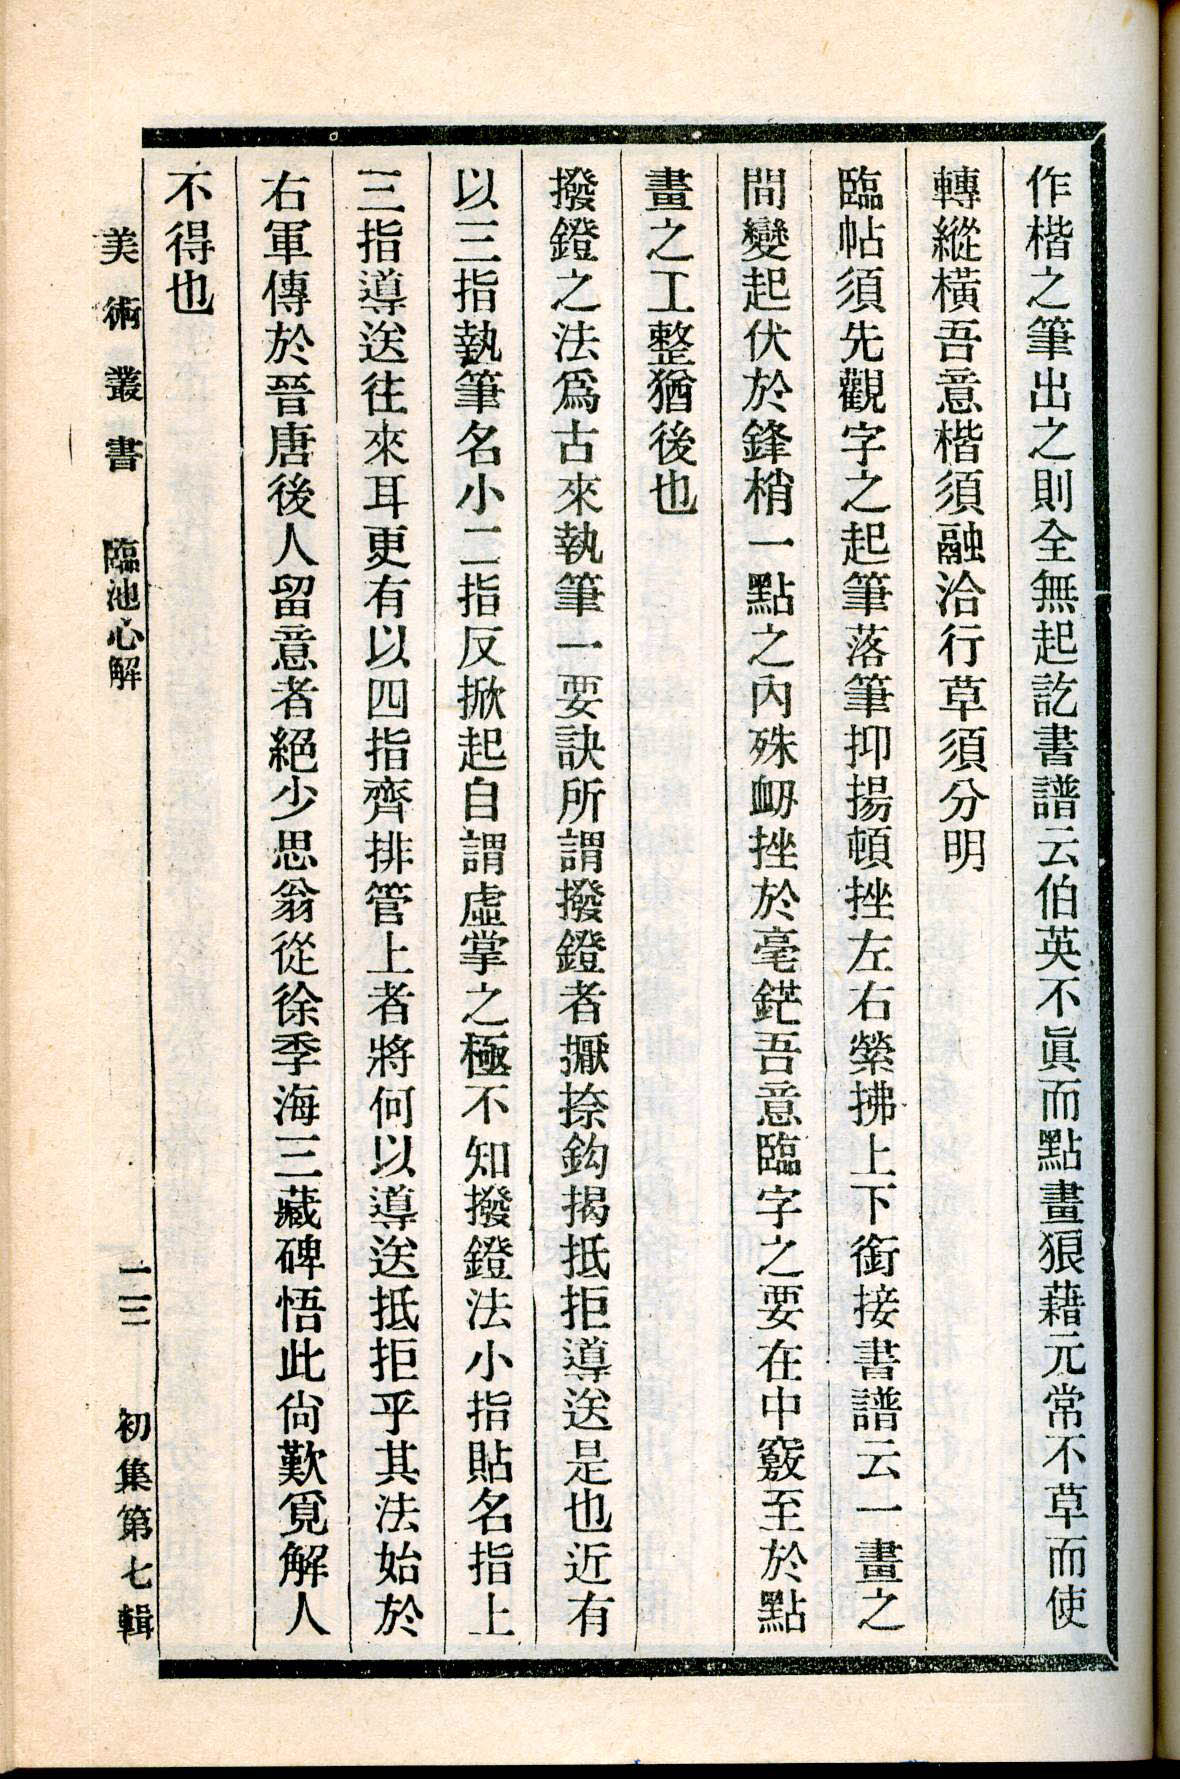 作楷之筆出之則全無起訖書譜云伯英不眞而點畫狼藉元常不草而使
轉縱橫吾意楷須融洽行草須分明
臨帖須先觀字之起筆落筆抑揚頓挫左右縈拂上下銜接書譜云一畫之
間變起伏於鋒梢一點之內殊衂挫於毫鋩吾意臨字之要在中竅至於點
畫之工整猶後也
撥鐙之法爲古來執筆一要訣所謂撥鐙者擫捺鈎揭抵拒導送是也近有
以三指執筆名小二指反掀起自謂虛掌之極不知撥鐙法小指貼名指上
三指導送往來耳更有以四指齊排管上者將何以導送抵拒乎其法始於
右軍傳於晉唐後人留意者絕少思翁從徐季海三藏碑悟此尙歎覓解人
不得也
美術叢書 臨池心解 二三 初集第七輯